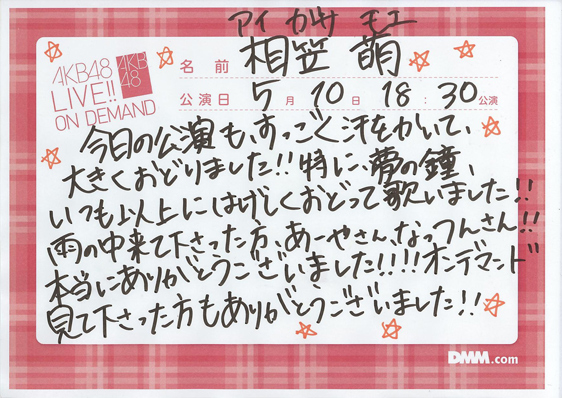 アイ がさ モエ
AKB48
LIVE!!
ON DEMAND
AKB
48
名前 相笠 萌
公演日 5月10日 18:30公演
今日の公演も、すっごく汗をかいて、
大きくおどりました!!特に、夢の鐘、
いつも以上にはげしくおどって歌いました!!
雨の中来て下さった方、あーやさん、なっつんさん!!
本当にありがとうございました!!!!オンデマンド
見て下さった方もありがとうございました!!
DMM.com